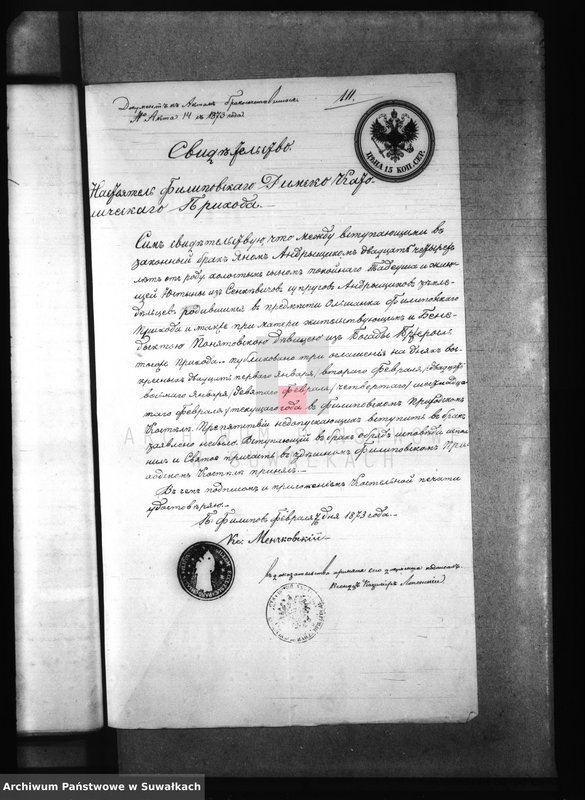 Документъ къ Актамъ бракосочетанія
№ Акта 14 съ 1873 года
111.
ЦѢНА 15 КОП. СЕР.
Свидѣтельство.
Настоятель Филиповскаго Римско Като-
лическаго Прихода.
Симъ свидѣтельствую, что между вступающими въ
законный бракъ Яномъ Андрыщикомъ двадцать четырехъ
лѣтъ отъ роду холостымъ сыномъ покойнаго Тадеуша и жи-
щей Юстины изъ Сенкевичовъ супруговъ Андрыщиковъ
родившимся въ Филиповскаго
Прихода и тамже при матери жительствующимъ и Бене-
диктою Понятовскою дѣвицею изъ Посады Пржеросль
тогоже Прихода публиковано три оглашенія на дняхъ вос-
кресныхъ двадцать перваго Января, втораго Февраля, двадцать
восьмаго Января, девятаго Февраля, четвертаго, шестнадца-
таго Февраля текущаго года въ Филиповскомъ Приходскомъ
Костелѣ. Препятствій недопускающихъ вступить въ бракъ
заявлено небыло. Вступающій въ бракъ обрядъ исповѣди испол-
нилъ и Святое причастіе въ здѣшнемъ Филиповскомъ При-
ходскомъ Костелѣ принялъ.
Въ чемъ подписомъ и приложеніемъ Костельной печати
удостовѣряю.
П. Филиповъ Февраля 4/16 дня 1873 года.
Кс. Менчковскій
Въ доказательство принятія сего документа подписалъ
Ксендзъ
A
W SUWAŁKACH
Archiwum Państwowe w Suwałkach